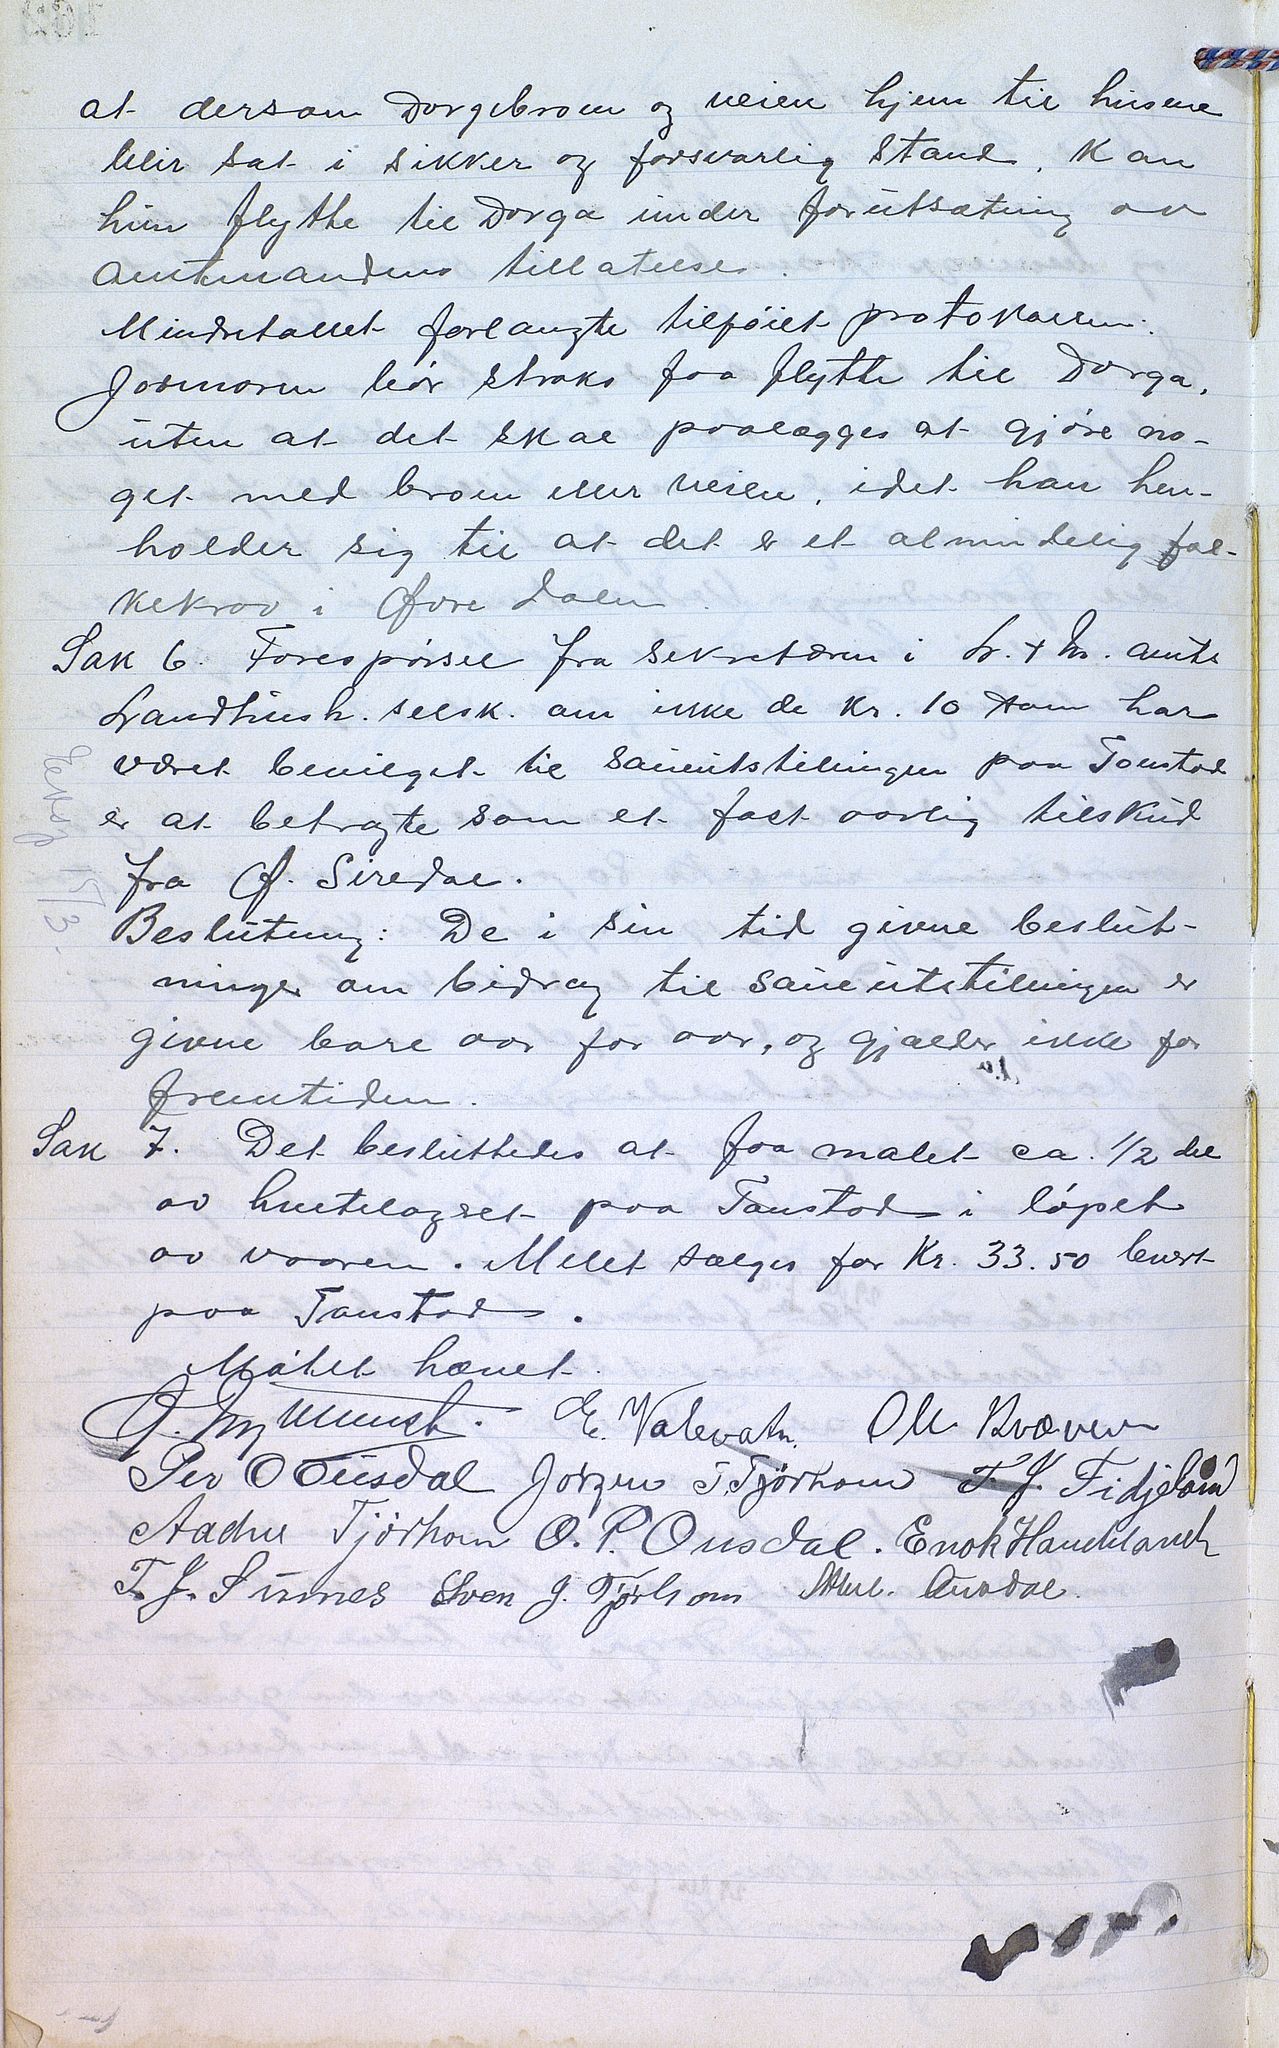 at dersom Dorgebroen og veien hjem til husene
blir sat i sikker og forsvarlig stand, kan
hun flytte til Dorga under forutsætning av
amtmandens tillatelse.
Mindretallet forlangte tilføiet protokollen:
Jormoren bør straks faa flytte til Dorga,
uten at det skal paalægges at gjøre no-
get med broen eller veien, idet han hen-
holder sig til at det er et almindelig fol-
kekrav i Øvre dalen.
Sak 6. Forespørsel fra sekretæren i L. & M. amts
Landhush. selsk. om ikke de Kr. 10 som har
været bevilget til saueutstillingen paa Tonstad
er at betragte som et fast aarlig tilskud
fra Ø. Siredal.
Beslutning: De i sin tid givne beslut-
ninger om bidrag til saueutstillingen er
givne bare aar for aar, og gjælder ikke for
fremtiden.
Sak 7. Det besluttedes at faa malet ca. 1/2 del
av hvetelagret paa Tonstad i løpet
av vaaren. Melet sælges for Kr. 33.50 levert
paa Tonstad.
Møtet hævet.
E. Valevatn. Ole Kvæven
Per O Ousdal Jørgen T. Tjørhom T. J. Fidjeland
Aadne Tjørhom O. P. Ousdal. Enok Haughland
T. J. Sinnes Sven J. Tjørhom Ousdal.
Eksp 15/3